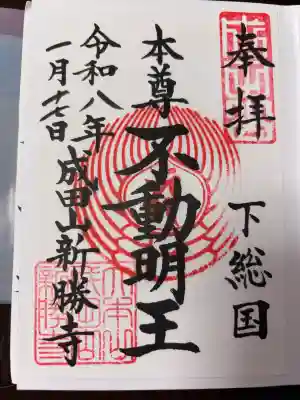 奉拝
下総国
本尊 不動明王
成田山新勝寺
令和八年
一月十七日